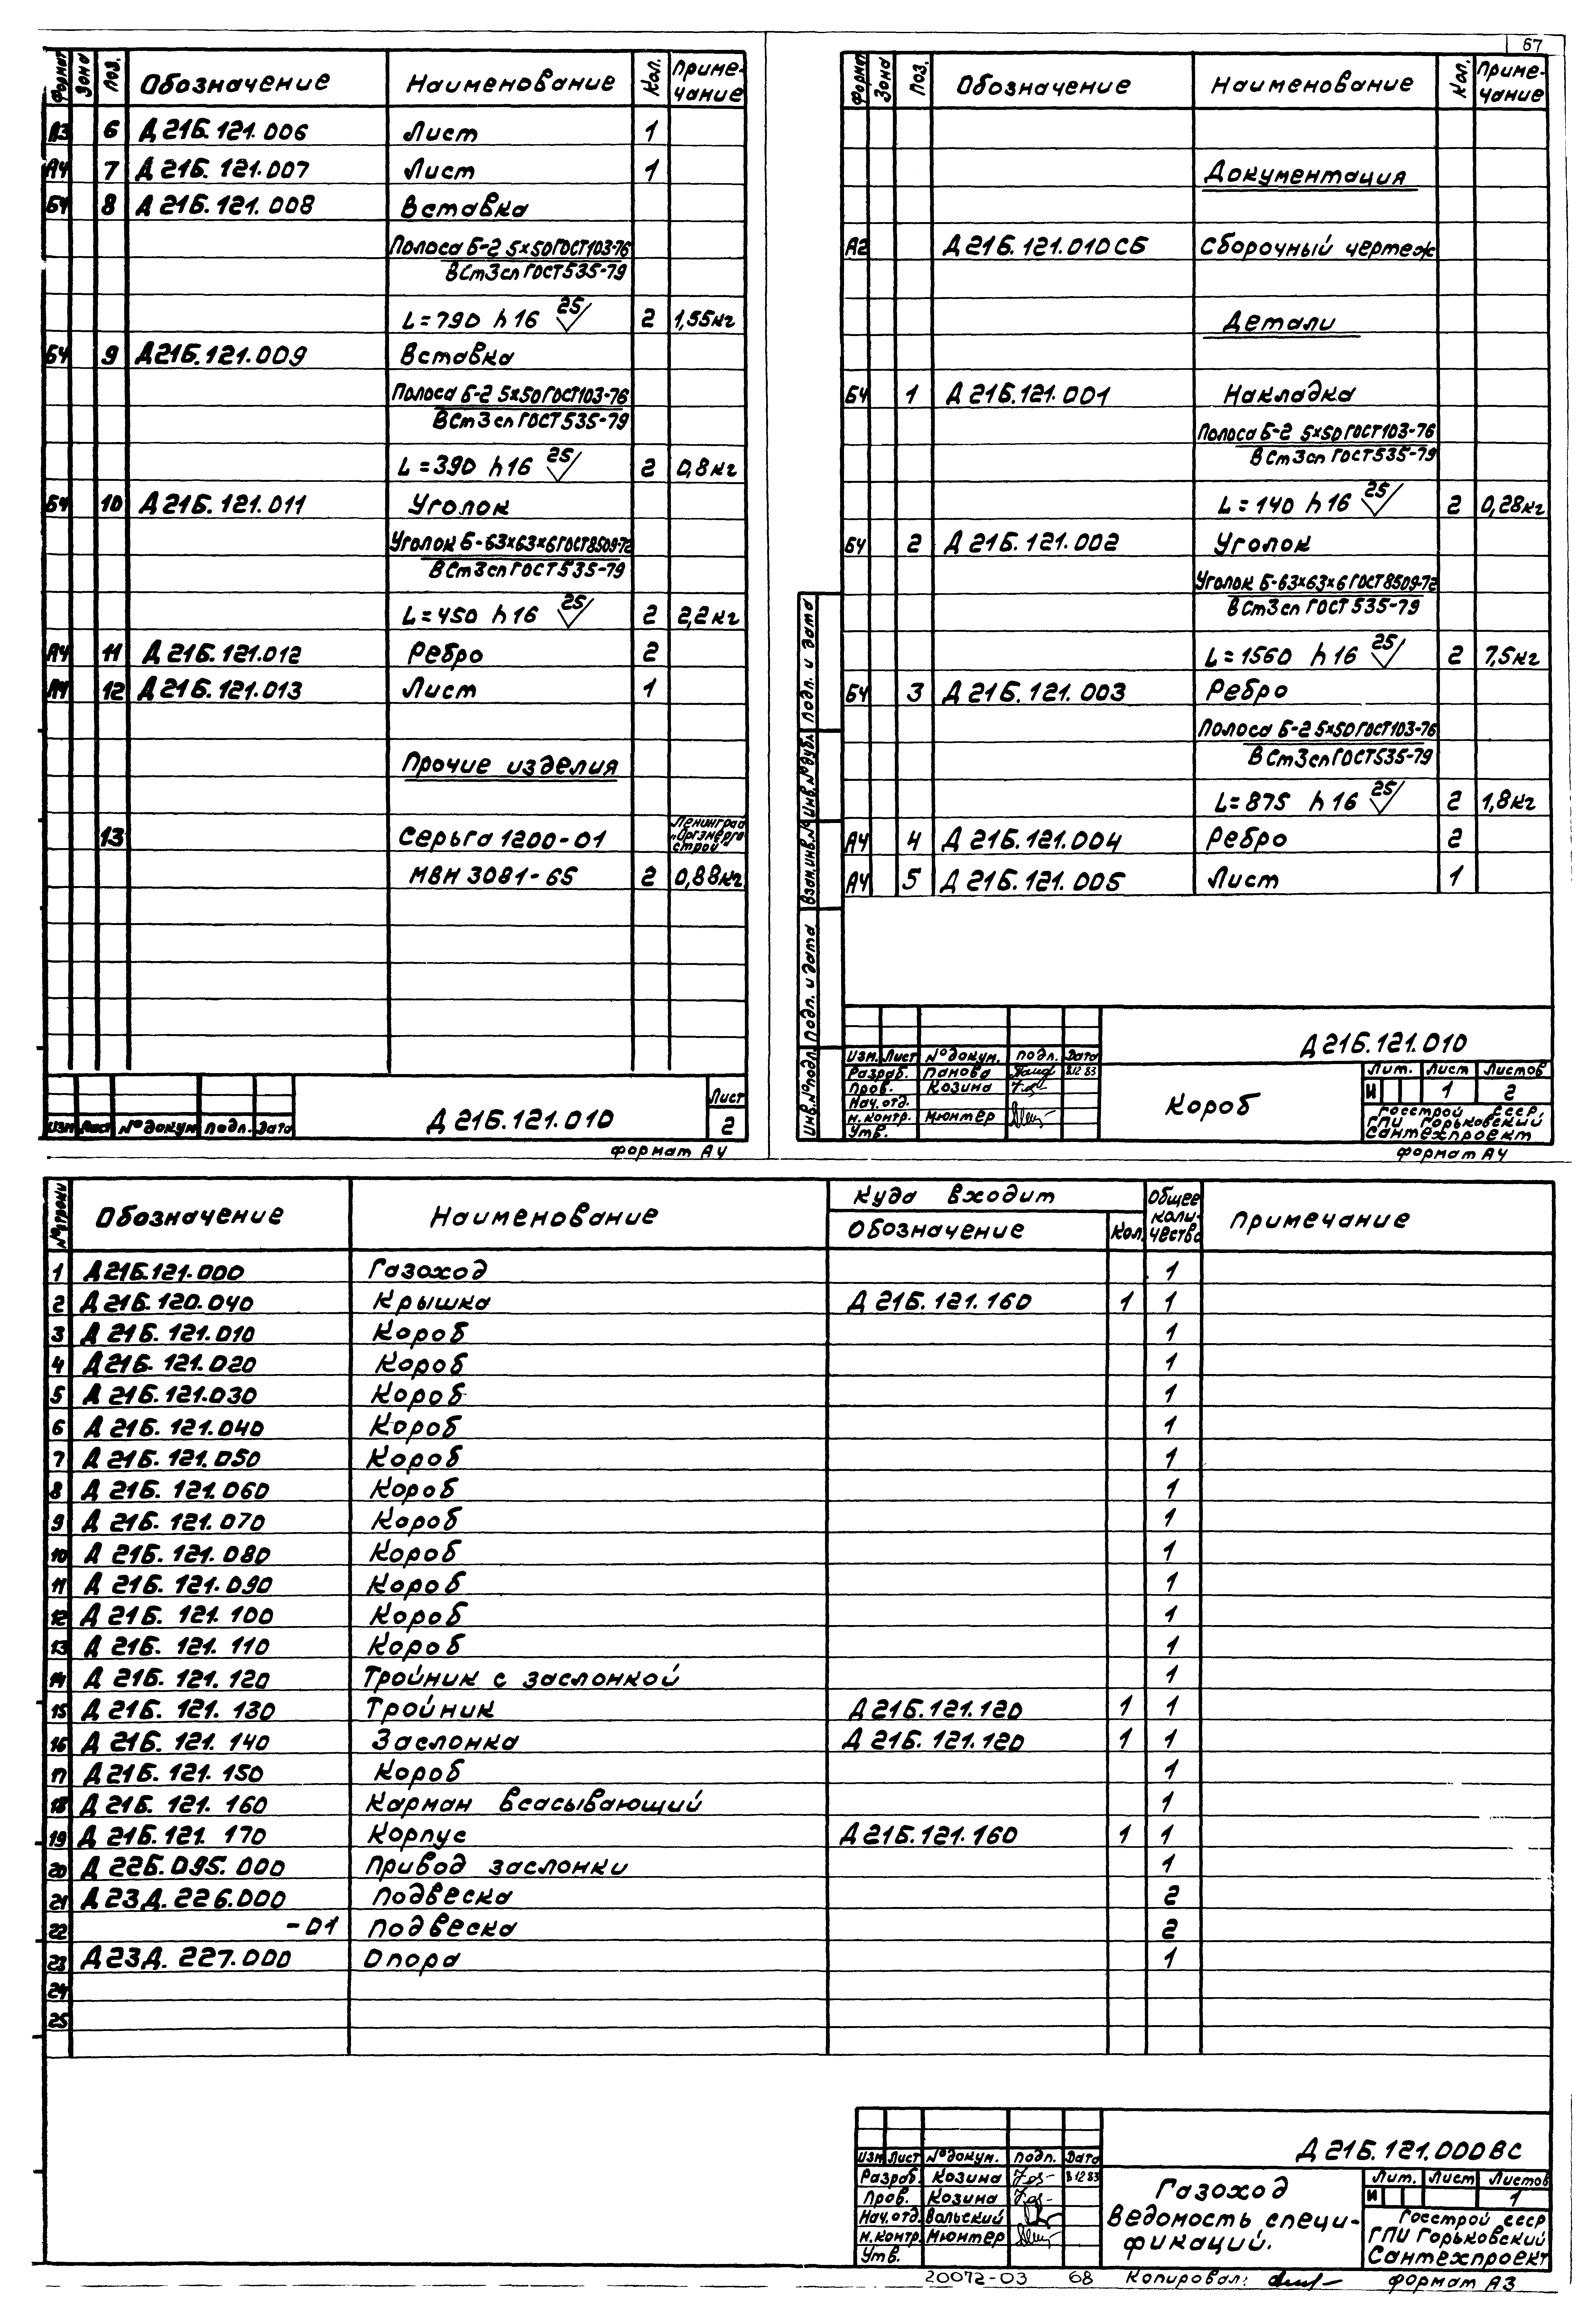 67
Формат Зона Поз. Обозначение Наименование Кол. Примечание
А3 6 Д21Б.121.006 Лист 1
А4 7 Д21Б.121.007 Лист 1
БЧ 8 Д21Б.121.008 Вставка
Полоса Б-2 5×50 ГОСТ103-76
ВСт3сп ГОСТ535-79
L=790 h16 25 2 1,55кг
БЧ 9 Д21Б.121.009 Вставка
Полоса Б-2 5×50 ГОСТ103-76
ВСт3сп ГОСТ535-79
L=390 h16 25 2 0,8кг
БЧ 10 Д21Б.121.011 Уголок
Уголок Б-63×63×6 ГОСТ8509-72
ВСт3сп ГОСТ535-79
L=450 h16 25 2 2,2кг
А4 11 Д21Б.121.012 Ребро 2
А4 12 Д21Б.121.013 Лист 1
Прочие изделия
13 Серьга 1200-01 Ленинград „Оргэнергострой"
МВН 3081-65 2 0,88кг
Изм Лист № докум Подп. Дата
Д21Б.121.010
Лист
2
Формат А4
Формат Зона Поз. Обозначение Наименование Кол. Примечание
Документация
А2 Д21Б.121.010СБ Сборочный чертеж
Детали
БЧ 1 Д21Б.121.001 Накладка
Полоса Б-2 5×50 ГОСТ103-76
ВСт3сп ГОСТ535-79
L=140 h16 25 2 0,28кг
БЧ 2 Д21Б.121.002 Уголок
Уголок Б-63×63×6 ГОСТ8509-72
ВСт3сп ГОСТ535-79
L=1560 h16 25 2 7,5кг
БЧ 3 Д21Б.121.003 Ребро
Полоса Б-2 5×50 ГОСТ103-76
ВСт3сп ГОСТ535-79
L=875 h16 25 2 1,8кг
А4 4 Д21Б.121.004 Ребро 2
А4 5 Д21Б.121.005 Лист 1
Инв.№подл. Подп. и дата Взам.инв.№ Инв.№дубл. Подп. и дата
Изм. Лист № докум. Подп. Дата
Разраб. Панова 8.12.83
Пров. Козина
Нач.отд.
Н.контр. Мюнтер
Утв.
Д21Б.121.010
Короб
Лит. Лист Листов
И 1 2
Госстрой СССР,
ГПИ Горьковский
Сантехпроект
Формат А4
№ строки Обозначение Наименование Куда входит Общее количество Примечание
Обозначение Кол.
1 Д21Б.121.000 Газоход 1
2 Д21Б.120.040 Крышка Д21Б.121.160 1 1
3 Д21Б.121.010 Короб 1
4 Д21Б.121.020 Короб 1
5 Д21Б.121.030 Короб 1
6 Д21Б.121.040 Короб 1
7 Д21Б.121.050 Короб 1
8 Д21Б.121.060 Короб 1
9 Д21Б.121.070 Короб 1
10 Д21Б.121.080 Короб 1
11 Д21Б.121.090 Короб 1
12 Д21Б.121.100 Короб 1
13 Д21Б.121.110 Короб 1
14 Д21Б.121.120 Тройник с заслонкой 1
15 Д21Б.121.130 Тройник Д21Б.121.120 1 1
16 Д21Б.121.140 Заслонка Д21Б.121.120 1 1
17 Д21Б.121.150 Короб 1
18 Д21Б.121.160 Карман всасывающий 1
19 Д21Б.121.170 Корпус Д21Б.121.160 1 1
20 Д22Б.095.000 Привод заслонки 1
21 Д23Д.226.000 Подвеска 2
22 -01 Подвеска 2
23 Д23Д.227.000 Опора 1
24
25
Изм Лист № докум. Подп. Дата
Разраб. Козина 8.12.83
Пров. Козина
Нач.отд. Вольский
Н.контр. Мюнтер
Утв.
Д21Б.121.000ВС
Газоход
Ведомость специ-
фикаций.
Лит. Лист Листов
И 1
Госстрой СССР
ГПИ Горьковский
Сантехпроект
20072-03 68 Копировал: Формат А3